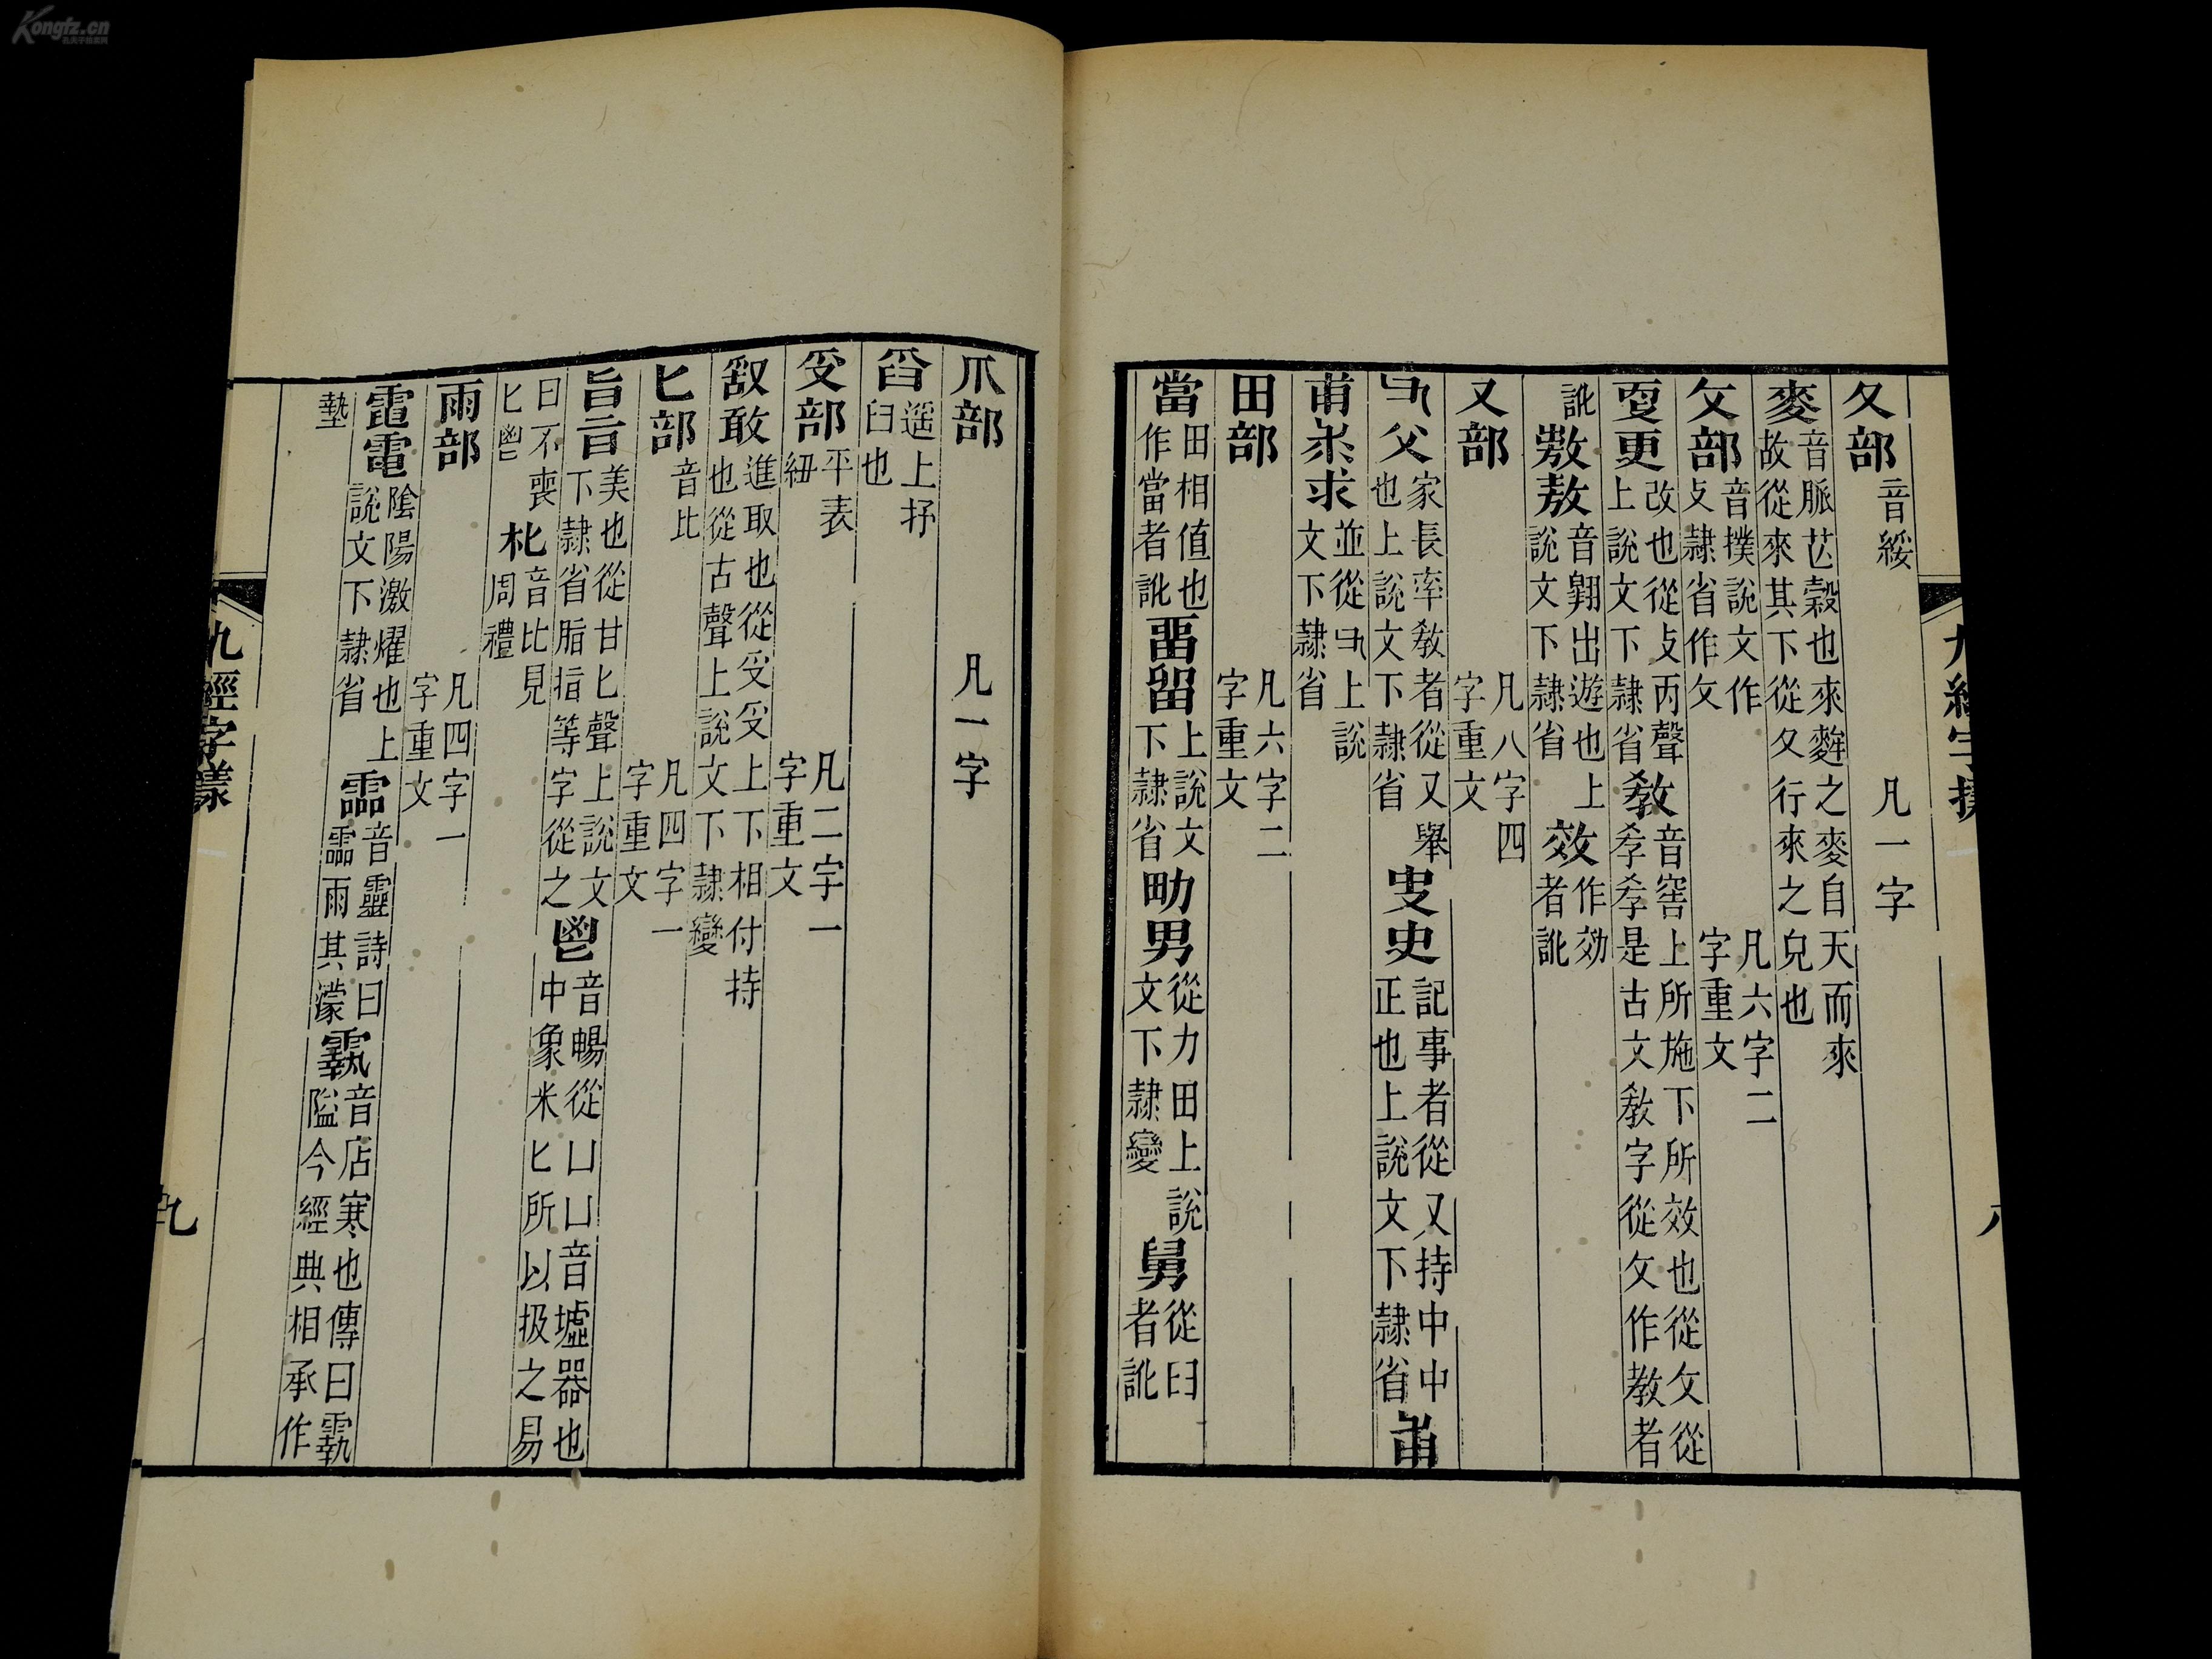 夊部音綏 凡一字
麥音脈芒穀也來麰之麥麥自天而來故從來其下從夊行來之皃也
攵部音撲說文作攴隸省作攵 凡六字二字重文
更改也從攴丙聲上說文下隸省教音窖上所施下所效也從攵從孝孝是古文教字從攵作教者
訛敖音翱出遊也上說文下隸省效作効者訛
又部 凡八字四字重文
父家長率教者從又舉也上說文下隸省史記事者從又持中中正也上說文下隸省
求並從上說文下隸省
田部 凡六字二字重文
當田相值也作當者訛畱留上說文下隸省男從力田上說文下隸變舅從臼者訛
爪部 凡一字
舀遥上抒臼也
𠬪部平表紐 凡二字一字重文
敢進取也從𠬪𠬪上下相付持也從古聲上說文下隸變
匕部音比 凡四字一字重文
旨美也從甘匕聲上說文下隸省脂指等字從之鬯音暢從凵凵音墟器也中象米匕所以扱之易
曰不喪匕鬯朼音比見周禮
雨部 凡四字一字重文
電陰陽激燿也上說文下隸省霝音靈詩曰霝雨其濛霵音店寒也傳曰隘今經典相承作
墊
九經字樣
九
Kongfz.cn